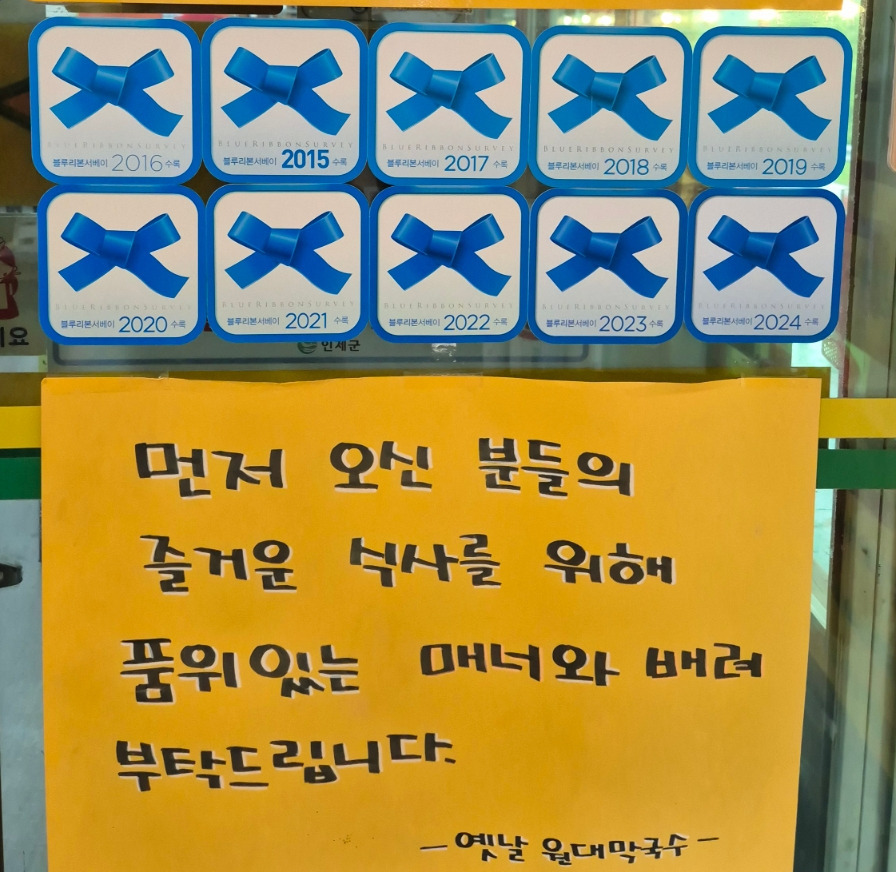 BLUERIBBONSURVEY
블루리본서베이 2016 수록
BLUERIBBONSURVEY
블루리본서베이 2015 수록
BLUERIBBONSURVEY
블루리본서베이 2017 수록
BLUERIBBONSURVEY
블루리본서베이 2018 수록
BLUERIBBONSURVEY
블루리본서베이 2019 수록
BLUERIBBONSURVEY
블루리본서베이 2020 수록
BLUERIBBONSURVEY
블루리본서베이 2021 수록
BLUERIBBONSURVEY
블루리본서베이 2022 수록
BLUERIBBONSURVEY
블루리본서베이 2023 수록
BLUERIBBONSURVEY
블루리본서베이 2024 수록
인제군
먼저 오신 분들의
즐거운 식사를 위해
품위있는 매너와 배려
부탁드립니다.
-옛날 원대막국수-